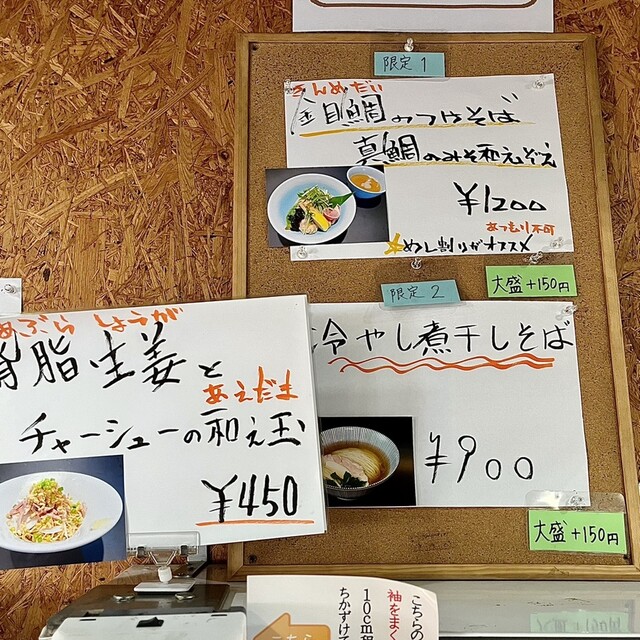 限定1
きんめだい
金目鯛のつけそば
真鯛のみそ和えぞえ
¥1200
あつもり不可
★めし割りがオススメ
大盛+150円
限定2
冷やし煮干しそば
¥900
大盛+150円
あぶら しょうが
背脂生姜と
あえだま
チャーシューの和え玉
¥450
こちらの
袖をまく
10cm程
ちかずけて
こちら